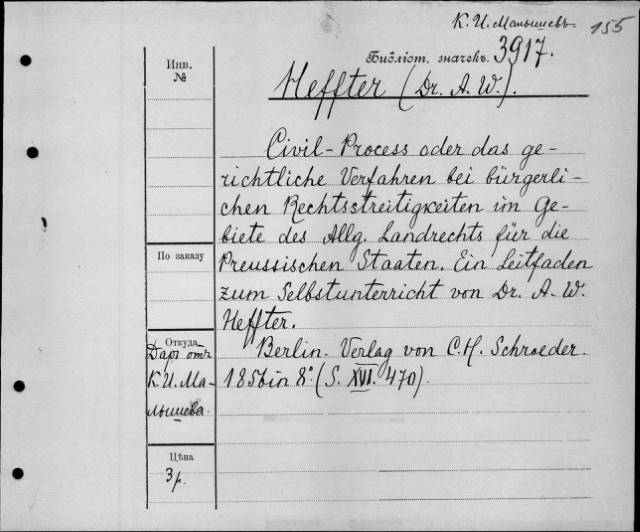 К. И. Малышевъ 155
Библіот. значекъ. 3917.
Инв.
№
Heffter (Dr. A. W.).
Civil-Process oder das ge-
richtliche Verfahren bei bürgerli-
chen Rechtsstreitigkeiten im Ge-
biete des Allg. Landrechts für die
По заказу
Preussischen Staaten. Ein Leitfaden
zum Selbstunterricht von Dr. A. W.
Heffter.
Откуда
Даръ отъ
К. И. Ма-
лышева.
Berlin. Verlag von C. H. Schroeder.
1856 in 8º. (S. XVI. 470).
Цѣна
3 р.